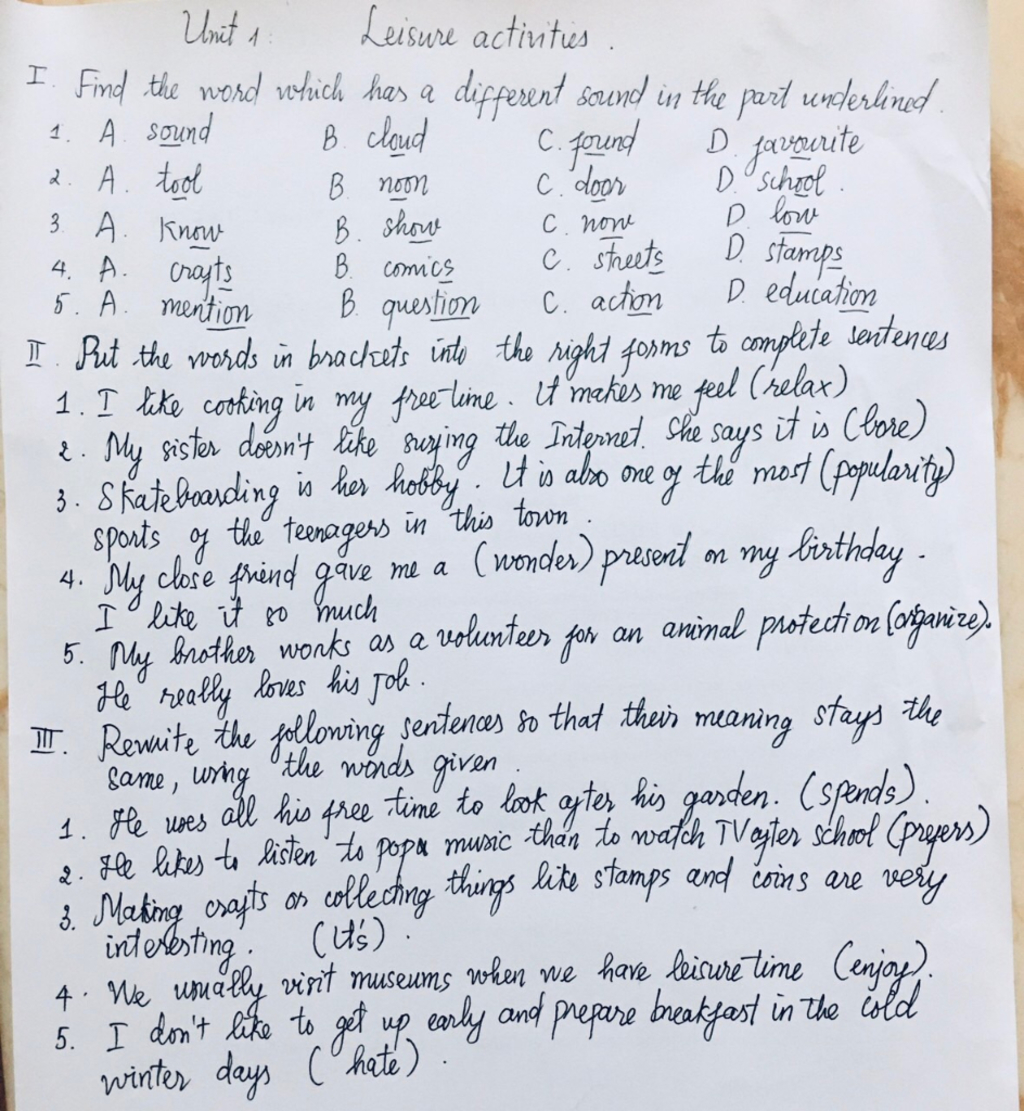 Unit 1: Leisure activities.
I. Find the word which has a different sound in the part underlined.
1. A. sound B. cloud C. found D. favourite
2. A. tool B noon C. door D. school.
3. A. Know B. show C. now D. low
4. A. crafts B. comics C. streets D. stamps
5. A. mention B. question C. action D. education
II. Put the words in brackets into the right forms to complete sentences
1. I like cooking in my free time. It makes me feel (relax)
2. My sister doesn't like surfing the Internet. She says it is (bore)
3. Skateboarding is her hobby. It is also one of the most (popularity)
sports of the teenagers in this town.
4. My close friend gave me a (wonder) present on my birthday.
I like it so much
5. My brother works as a volunteer for an animal protection (organize).
He really loves his job.
III. Rewrite the following sentences so that their meaning stays the
same, using the words given.
1. He uses all his free time to look after his garden. (spends).
2. He likes to listen to pop music than to watch TV after school (prefers)
3. Making crafts or collecting things like stamps and coins are very
interesting. (It's).
4. We usually visit museums when we have leisure time (enjoy).
5. I don't like to get up early and prepare breakfast in the cold
winter days (hate).